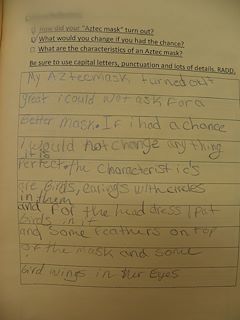 How did your "Aztec mask" turn out?
What would you change if you had the chance?
What are the characteristics of an Aztec mask?
Be sure to use capital letters, punctuation and lots of details. RADD.
My Aztecmask turned out
great i could not ask for a
Better mask. If i had a chance
I would not change any thing
it is
Perfect. the characteristic's
are Birds, earings with circles
in them
and for the head dress I put
Birds in it
and some feathers on top
of the mask and some
Bird wings in Her Eyes